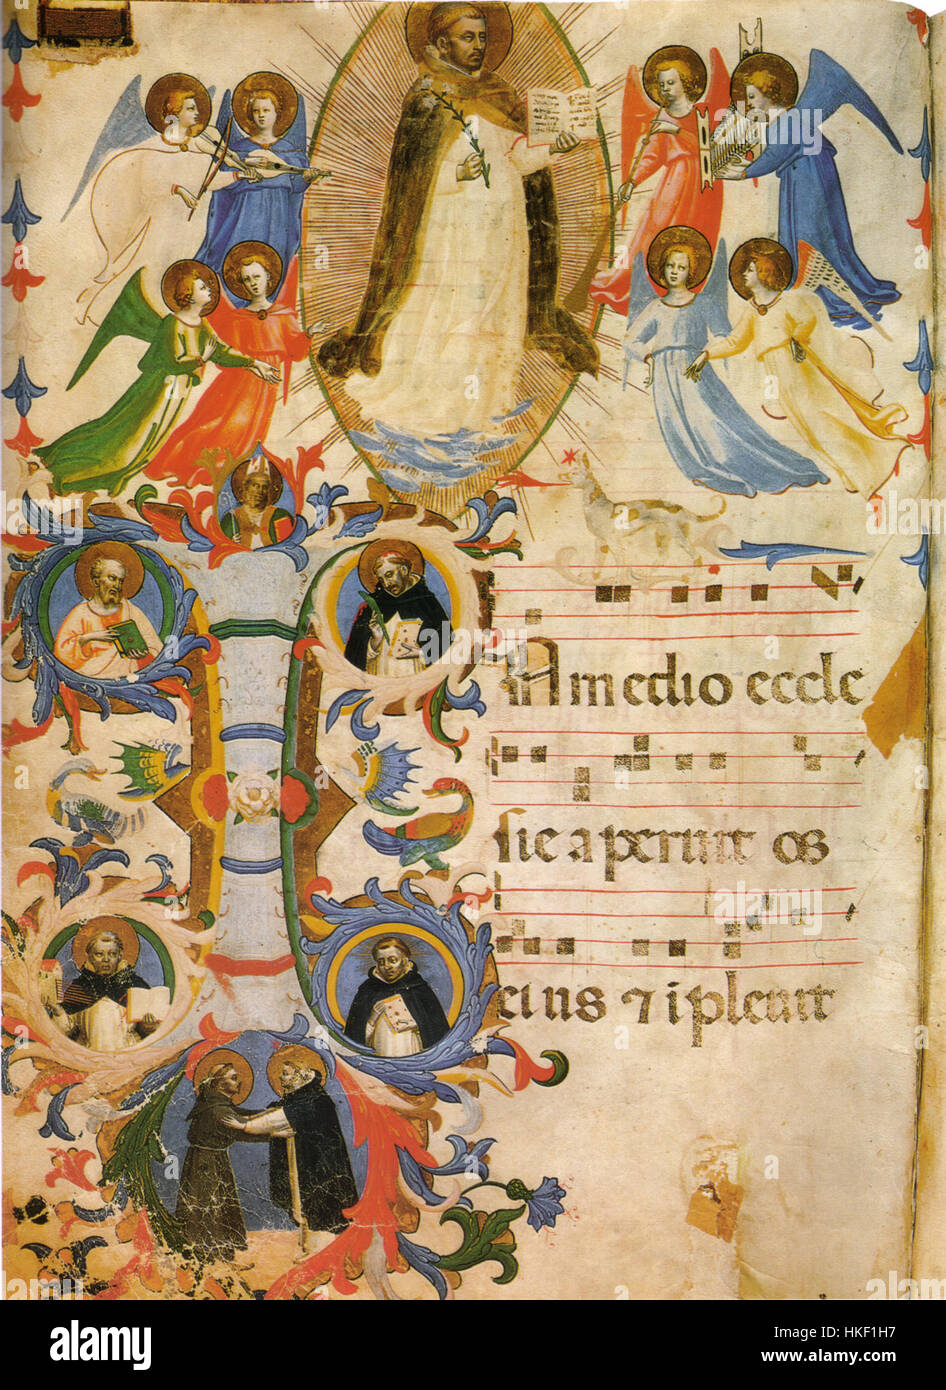 IN medio eccle
sie aperuit os
eius ⁊ ipleuit
alamy
Image ID: HKF1H7
www.alamy.com